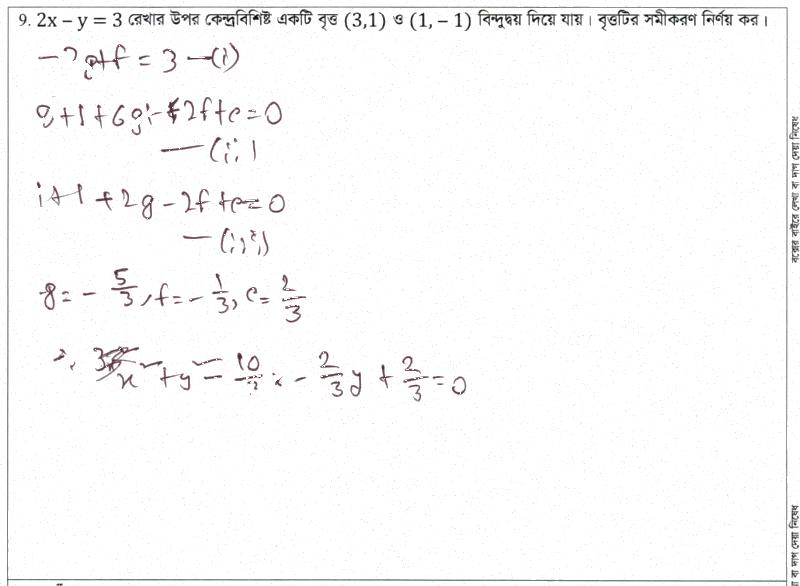 9. 2x – y = 3 রেখার উপর কেন্দ্রবিশিষ্ট একটি বৃত্ত (3,1) ও (1, – 1) বিন্দুদ্বয় দিয়ে যায়। বৃত্তটির সমীকরণ নির্ণয় কর।
-2g+f = 3 —(i)
9+1+6g+2f+c=0
—(ii)
1+1+2g-2f+c=0
—(iii)
g=-5/3, f=-1/3, c=2/3
∴ x²+y²-10/3 x - 2/3 y + 2/3 = 0
বক্সের বাইরে লেখা বা দাগ দেয়া নিষেধ
বা দাগ দেয়া নিষেধ